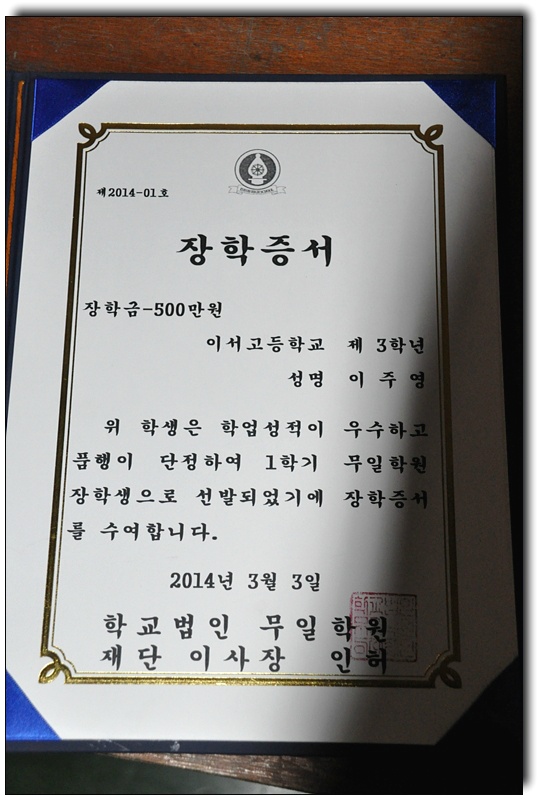 제2014-01호
장학증서
장학금-500만원
이서고등학교 제 3학년
성명 이 주 영
위 학생은 학업성적이 우수하고
품행이 단정하여 1학기 무일학원
장학생으로 선발되었기에 장학증서
를 수여합니다.
2014년 3월 3일
학교법인 무일학원
재단 이사장 인허